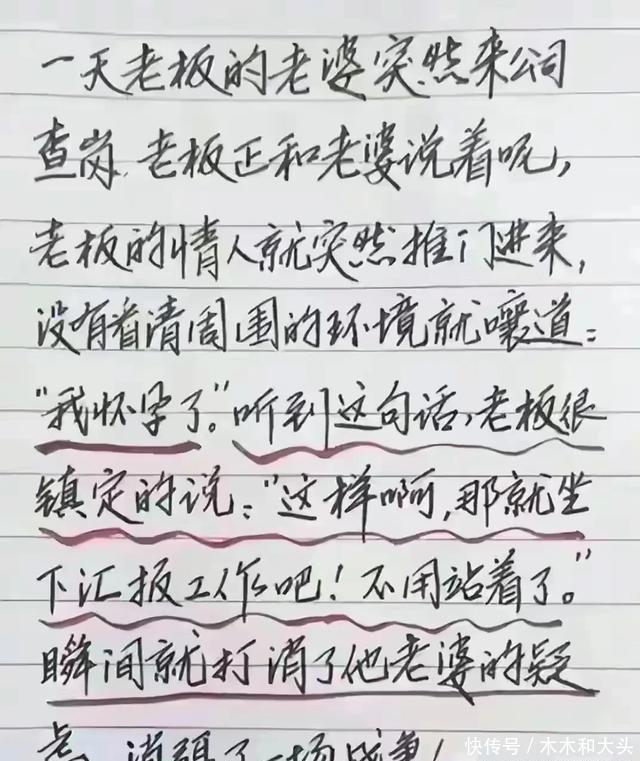 一天老板的老婆突然来公司
查岗.老板正和老婆说着呢,
老板的情人就突然推门进来,
没有看清周围的环境就嚷道:
“我怀孕了。”听到这句话,老板很
镇定的说:“这样啊,那就坐
下汇报工作吧!不用站着了。”
瞬间就打消了他老婆的疑
消弭了一场战争!
快传号/木木和大头